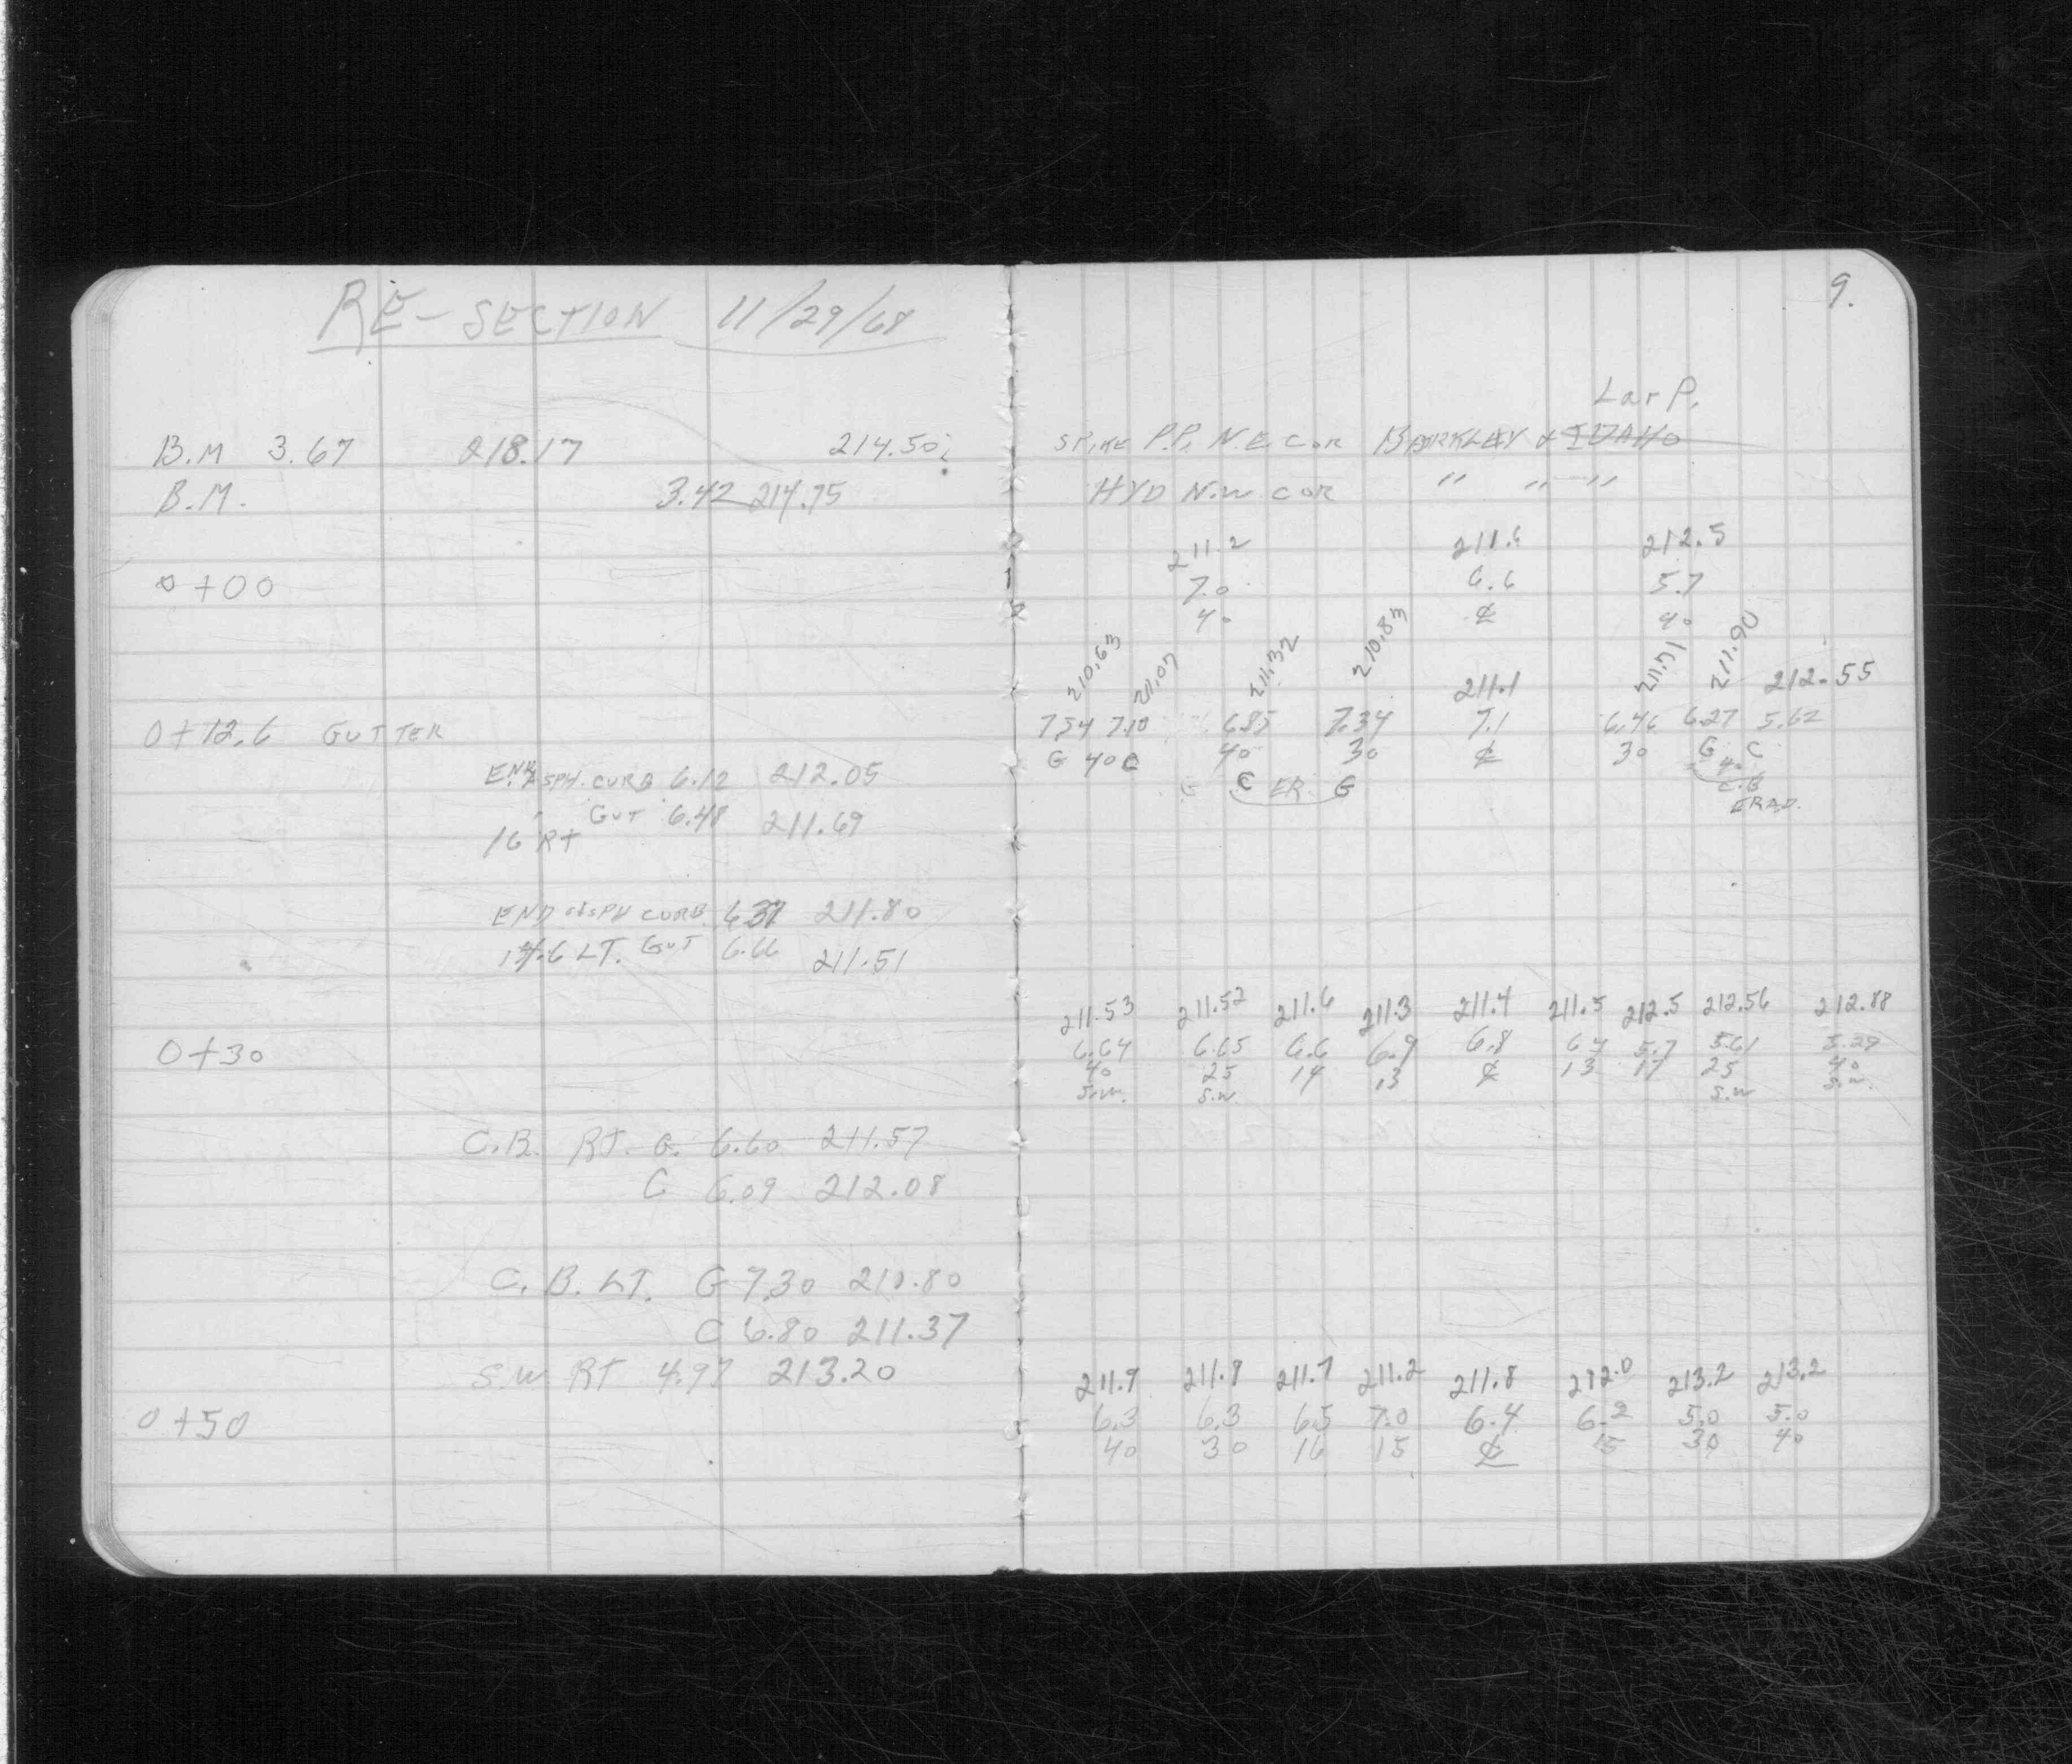 RE-SECTION 11/29/68
B.M 3.67 218.17 214.50
B.M. 3.42 214.75
0+00
0+12.6 GUTTER
END ASPH. CURB 6.12 212.05
GUT 6.48 211.69
16 RT
END ASPH CURB 6.37 211.80
14.6 LT. GUT 6.66 211.51
0+30
C.B. RT. G. 6.60 211.57
C 6.09 212.08
C.B. LT. G 7.30 210.80
C 6.80 211.37
S.W RT 4.97 213.20
0+50
9.
Lar P.
SPIKE P.P. N.E. COR BARKLEY & IDAHO
HYD N.W COR " " "
211.2 211.6 212.5
7.0 6.6 5.7
40 ℄ 40
210.63 211.07 211.32 210.83 211.1 211.71 211.90 212.55
7.54 7.10 6.85 7.34 7.1 6.46 6.27 5.62
G 40 C 40 30 ℄ 30 G C
40
G C ER G C.B
ERAD.
211.53 211.52 211.6 211.3 211.4 211.5 212.5 212.56 212.88
6.64 6.65 6.6 6.9 6.8 6.7 5.7 5.61 5.29
40 25 14 13 ℄ 13 17 25 40
S.W. S.W. S.W S.W.
211.9 211.9 211.7 211.2 211.8 212.0 213.2 213.2
6.3 6.3 6.5 7.0 6.4 6.2 5.0 5.0
40 30 16 15 ℄ 15 30 40